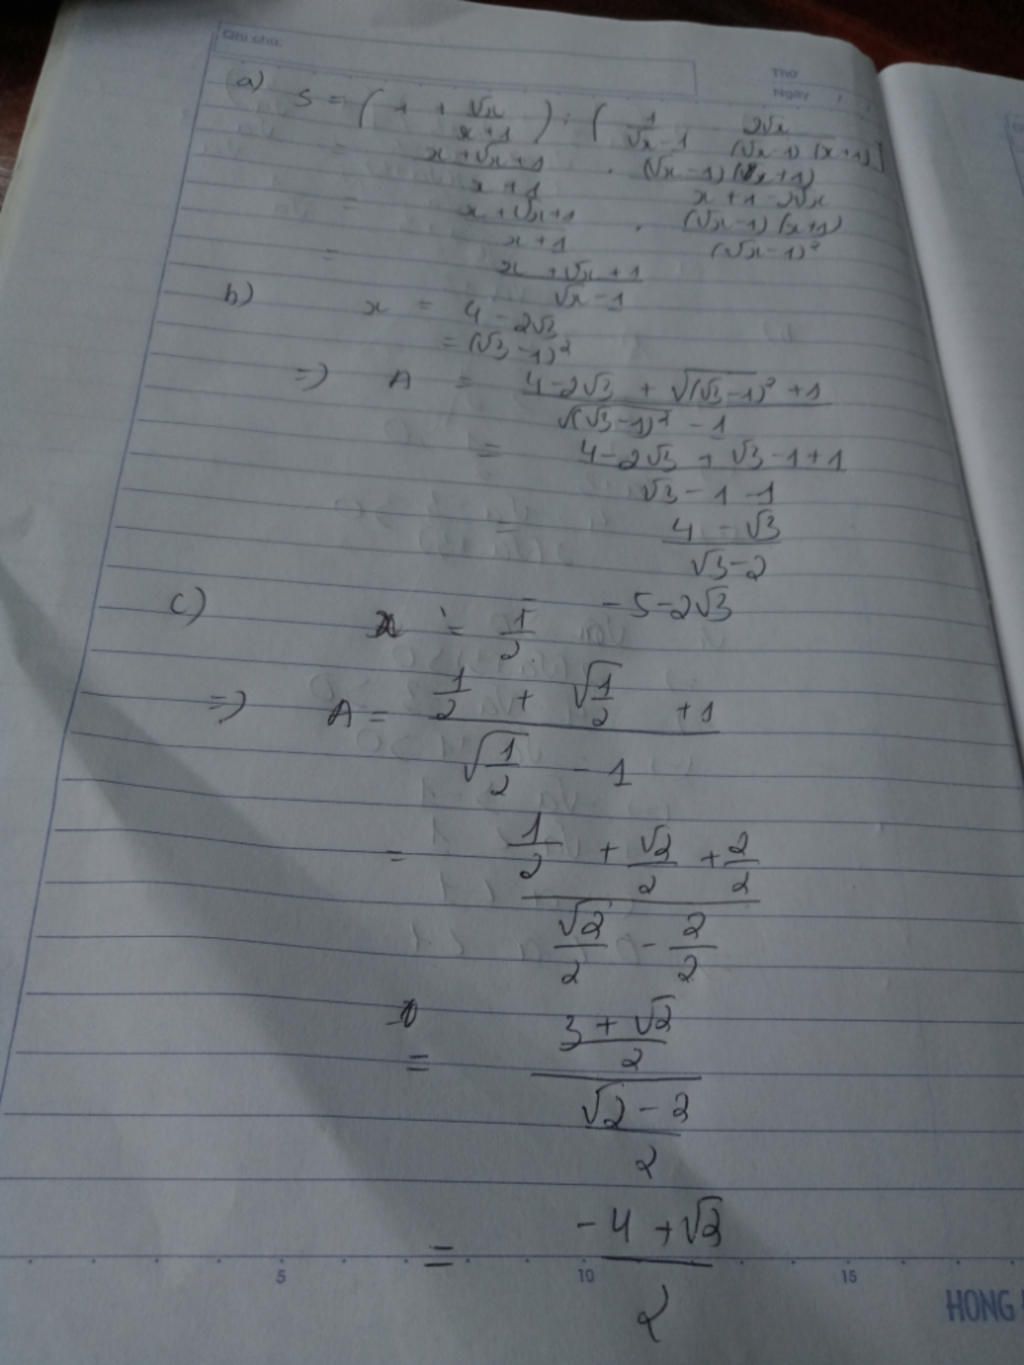 Ghi chú:
Thứ
Ngày
a) S = ( 1 + √x/(x+1) ) : ( 1/(√x-1) 2√x/((√x-1)(x+1)) ]
= (x+√x+1)/(x+1) . (√x-1)(x+1)/(x+1-2√x)
= (x+√x+1)/(x+1) . (√x-1)(x+1)/(√x-1)²
= (x+√x+1)/(√x-1)
b) x = 4-2√3
= (√3-1)²
=) A = (4-2√3 + √((√3-1)²) +1)/(√((√3-1)²) -1)
= (4-2√3 + √3-1+1)/(√3-1-1)
= (4-√3)/(√3-2)
= -5-2√3
c) x = 1/2
=) A = (1/2 + √(1/2) +1)/(√(1/2) -1)
= (1/2 + √2/2 + 2/2)/(√2/2 - 2/2)
= ((3+√2)/2)/((√2-2)/2)
= (-4+√2)/2
5 10 15
HONG